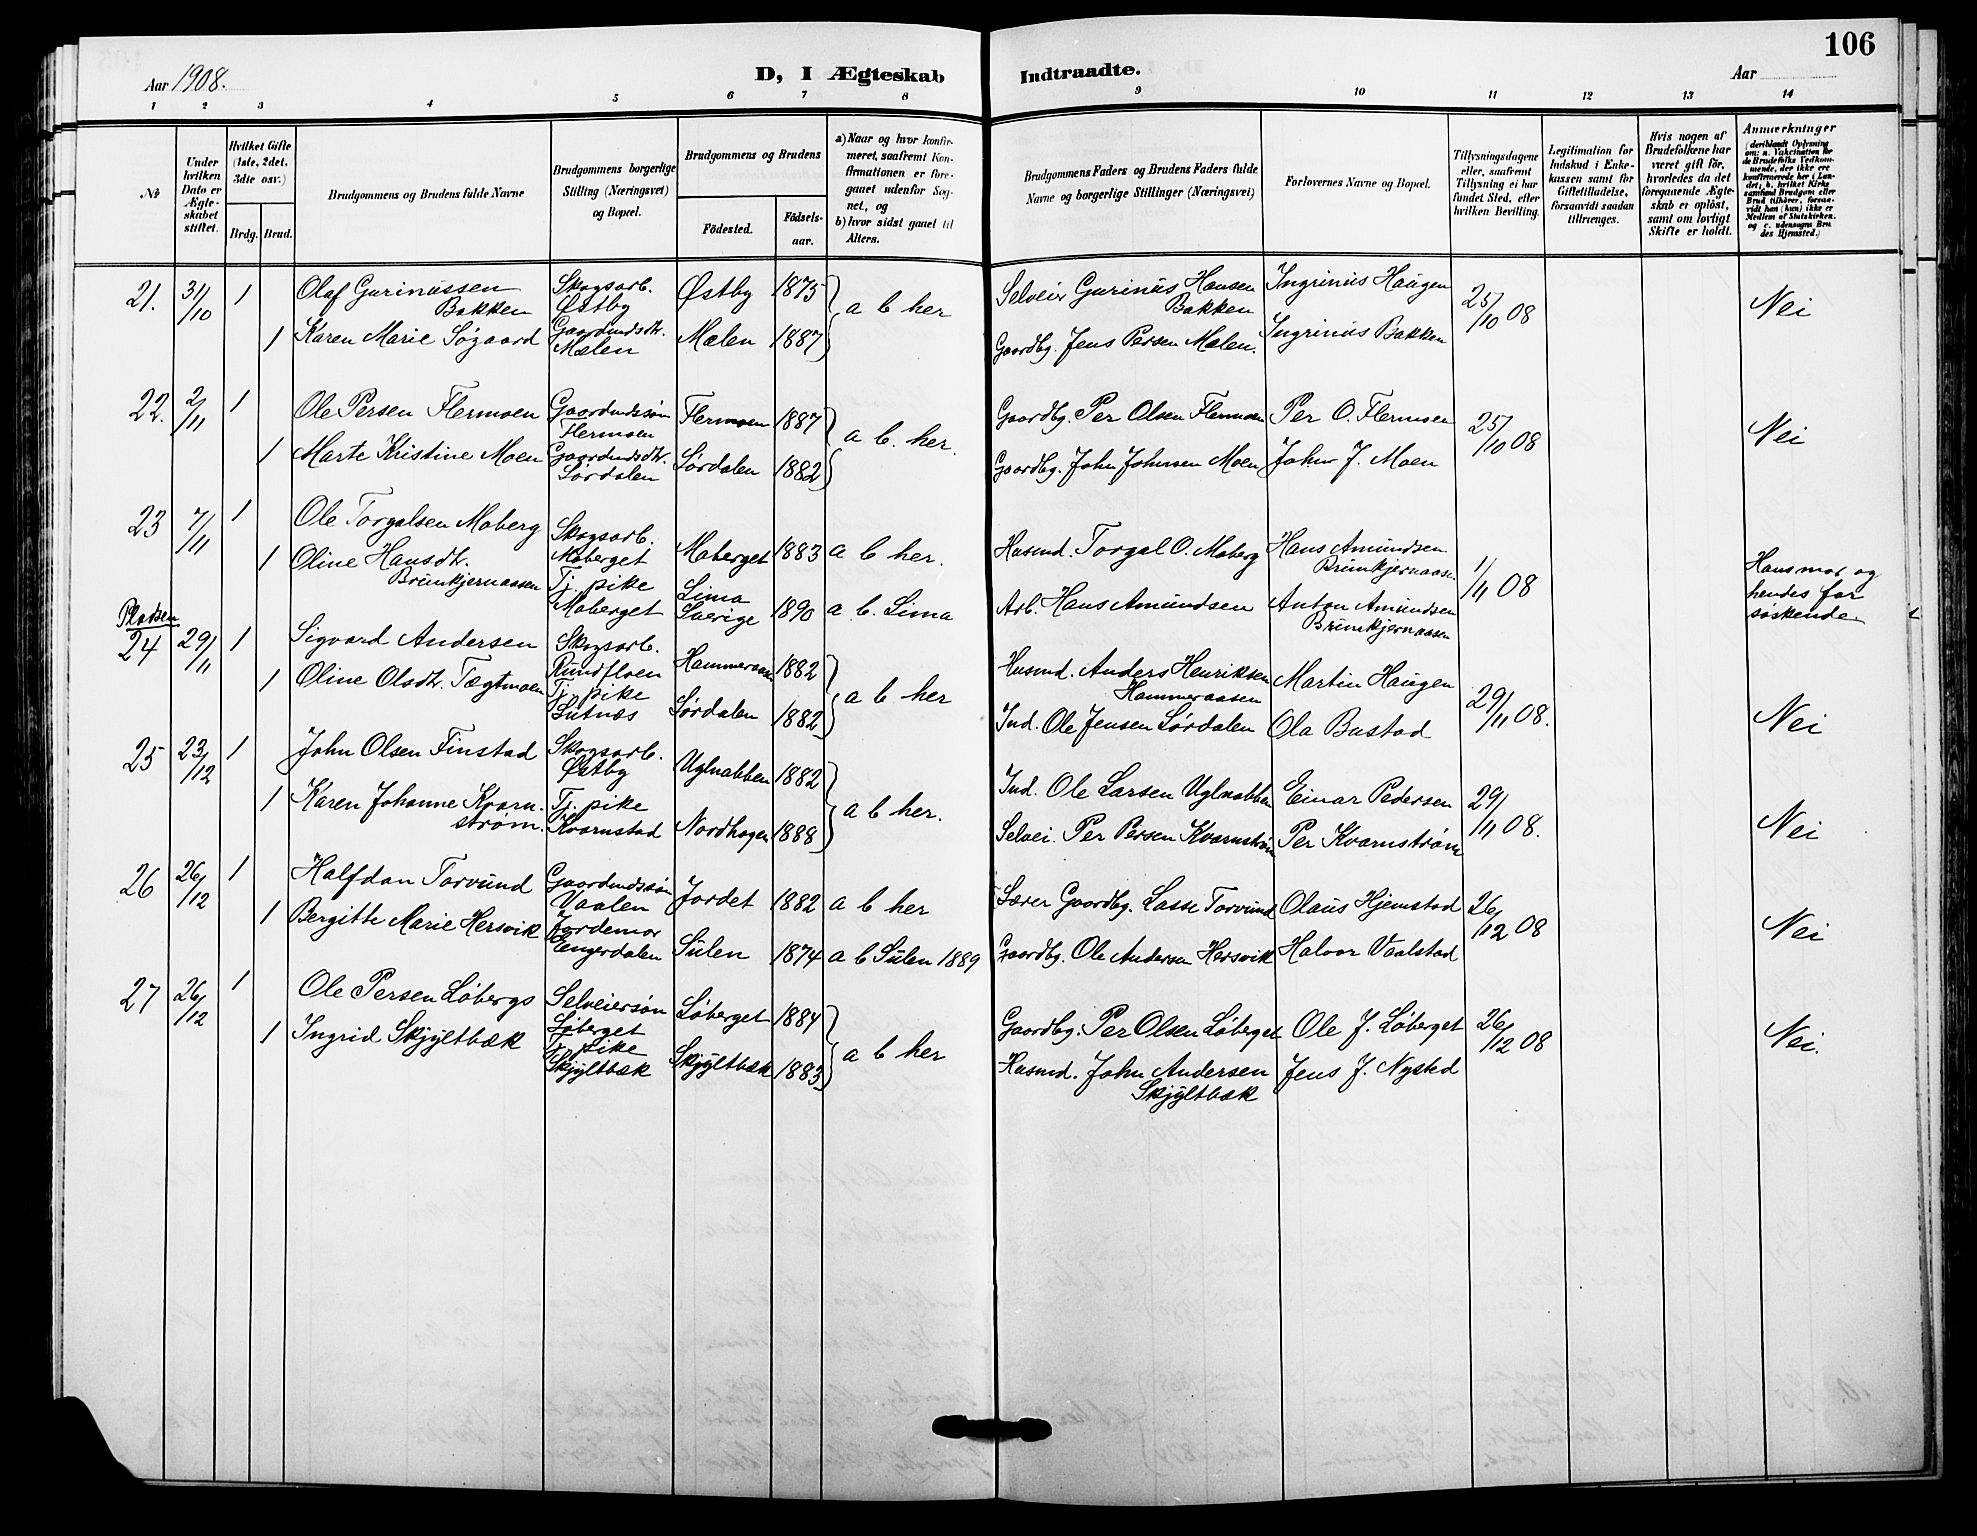 106
Aar 1908.
D, I Ægteskab Indtraadte.
Aar
1 2 3 4 5 6 7 8 9 10 11 12 13 14
No
Under hvilken Dato er Ægteskabet stiftet.
Hvilket Gifte (1ste, 2det, 3die osv.)
Brdg. Brud.
Brudgommens og Brudens fulde Navne
Brudgommens borgerlige Stilling (Næringsvei) og Bopæl.
Brudgommens og Brudens
Fødested. Fødselsaar.
a) Naar og hvor konfirmeret, saafremt Konfirmationen er foregaaet udenfor Sognet, og
b) hvor sidst gaaet til Alters.
Brudgommens Faders og Brudens Faders fulde Navne og borgerlige Stillinger (Næringsvei)
Forlovernes Navne og Bopæl.
Tillysningsdagene eller, saafremt Tillysning ei har fundet Sted, efter hvilken Bevilling.
Legitimation for Indskud i Enkekassen samt for Giftetilladelse, forsaavidt saadan tiltrænges.
Hvis nogen af Brudefolkene har været gift før, hvorledes da det foregaaende Ægteskab er opløst, samt om lovligt Skifte er holdt.
Anmærkninger
(deriblandt Oplysning om: a. Vakcination for de Brudefolks Vedkommende, der ikke ere konfirmerede her i Landet; b. hvilket Kirkesamfund Brudgom eller Brud tilhører, forsaavidt han (hun) ikke er Medlem af Statskirken, og c. udensogns Brudes Hjemsted.)
21. 31/10 1 Olaf Gurinussen Bakken Skogsarb. Østby Østby 1875 a b her Selveier Gurinus Hansen Bakken Ingrinus Haugen 25/10 08 Nei
1 Karen Marie Søgaard Gaardmdsdtr. Mælen Mælen 1887 Gaardbg. Jens Persen Mælen. Ingrinus Bakken
22. 2/11 1 Ole Persen Flermoen Gaardmdssøn Flermoen Flermoen 1887 a b. her. Gaardbg. Per Olsen Flermoen Per O. Flermoen 25/10 08 Nei
1 Marte Kristine Moen Gaardmdsdtr. Sørdalen Sørdalen 1882 Gaardbg. John Johnsen Moen John J. Moen
23 7/11 1 Ole Torgalsen Moberg Skogsarb. Moberget Moberget 1883 a b her. Husmd. Torgal O. Moberg Hans Amundsen Brunkjernaasen 1/11 08 Hans mor og hendes far søskende
1 Oline Hansdtr. Brunkjernaasen Tj. pike Moberget Lima Sverige 1890 a b. Lima Arb. Hans Amundsen Anton Amundsen Brunkjernaasen
Pladsen
24 29/11 1 Sigvard Andersen Skogsarb. Rundfloen Hammeraasen 1882 a b her Husmd. Anders Henriksen Hammeraasen Martin Haugen 29/11 08. Nei
1 Oline Olsdtr. Tægtmoen Tj. pike Lutnæs Sørdalen 1882 Ind. Ole Jensen Sørdalen Ola Bustad
25 23/12 1 John Olsen Finstad Skogsarb. Østby Uglnabben 1882 a b her. Ind. Ole Larsen Uglnabben Einar Pedersen 29/11 08. Nei
1 Karen Johanne Kvarnstrøm. Tj. pike Kvarnstad Nordhagen 1888 Selvei. Per Persen Kvarnstrøm Per Kvarnstrøm
26 26/12 1 Halfdan Torvund Gaardmdssøn Vaalen Jordet 1882 a b her Lærer Gaardbg. Lasse Torvund Olaus Hjemstad 26/12 08 Nei
1 Bergitte Marie Hersvik Jordemor Engerdalen Sulen 1874 a b Sulen 1889 Gaardbg. Ole Andersen Hersvik Halvor Vaalstad
27 26/12 1 Ole Persen Løbergs Selveiersøn Løberget Løberget 1884 a b her Gaardbg. Per Olsen Løberget Ole J. Løberget 26/12 08 Nei.
1 Ingrid Skjyltbæk Tj pike Skjyltbæk Skjyltbæk 1883 Husmd. John Andersen Skjyltbæk Jens J. Nysted